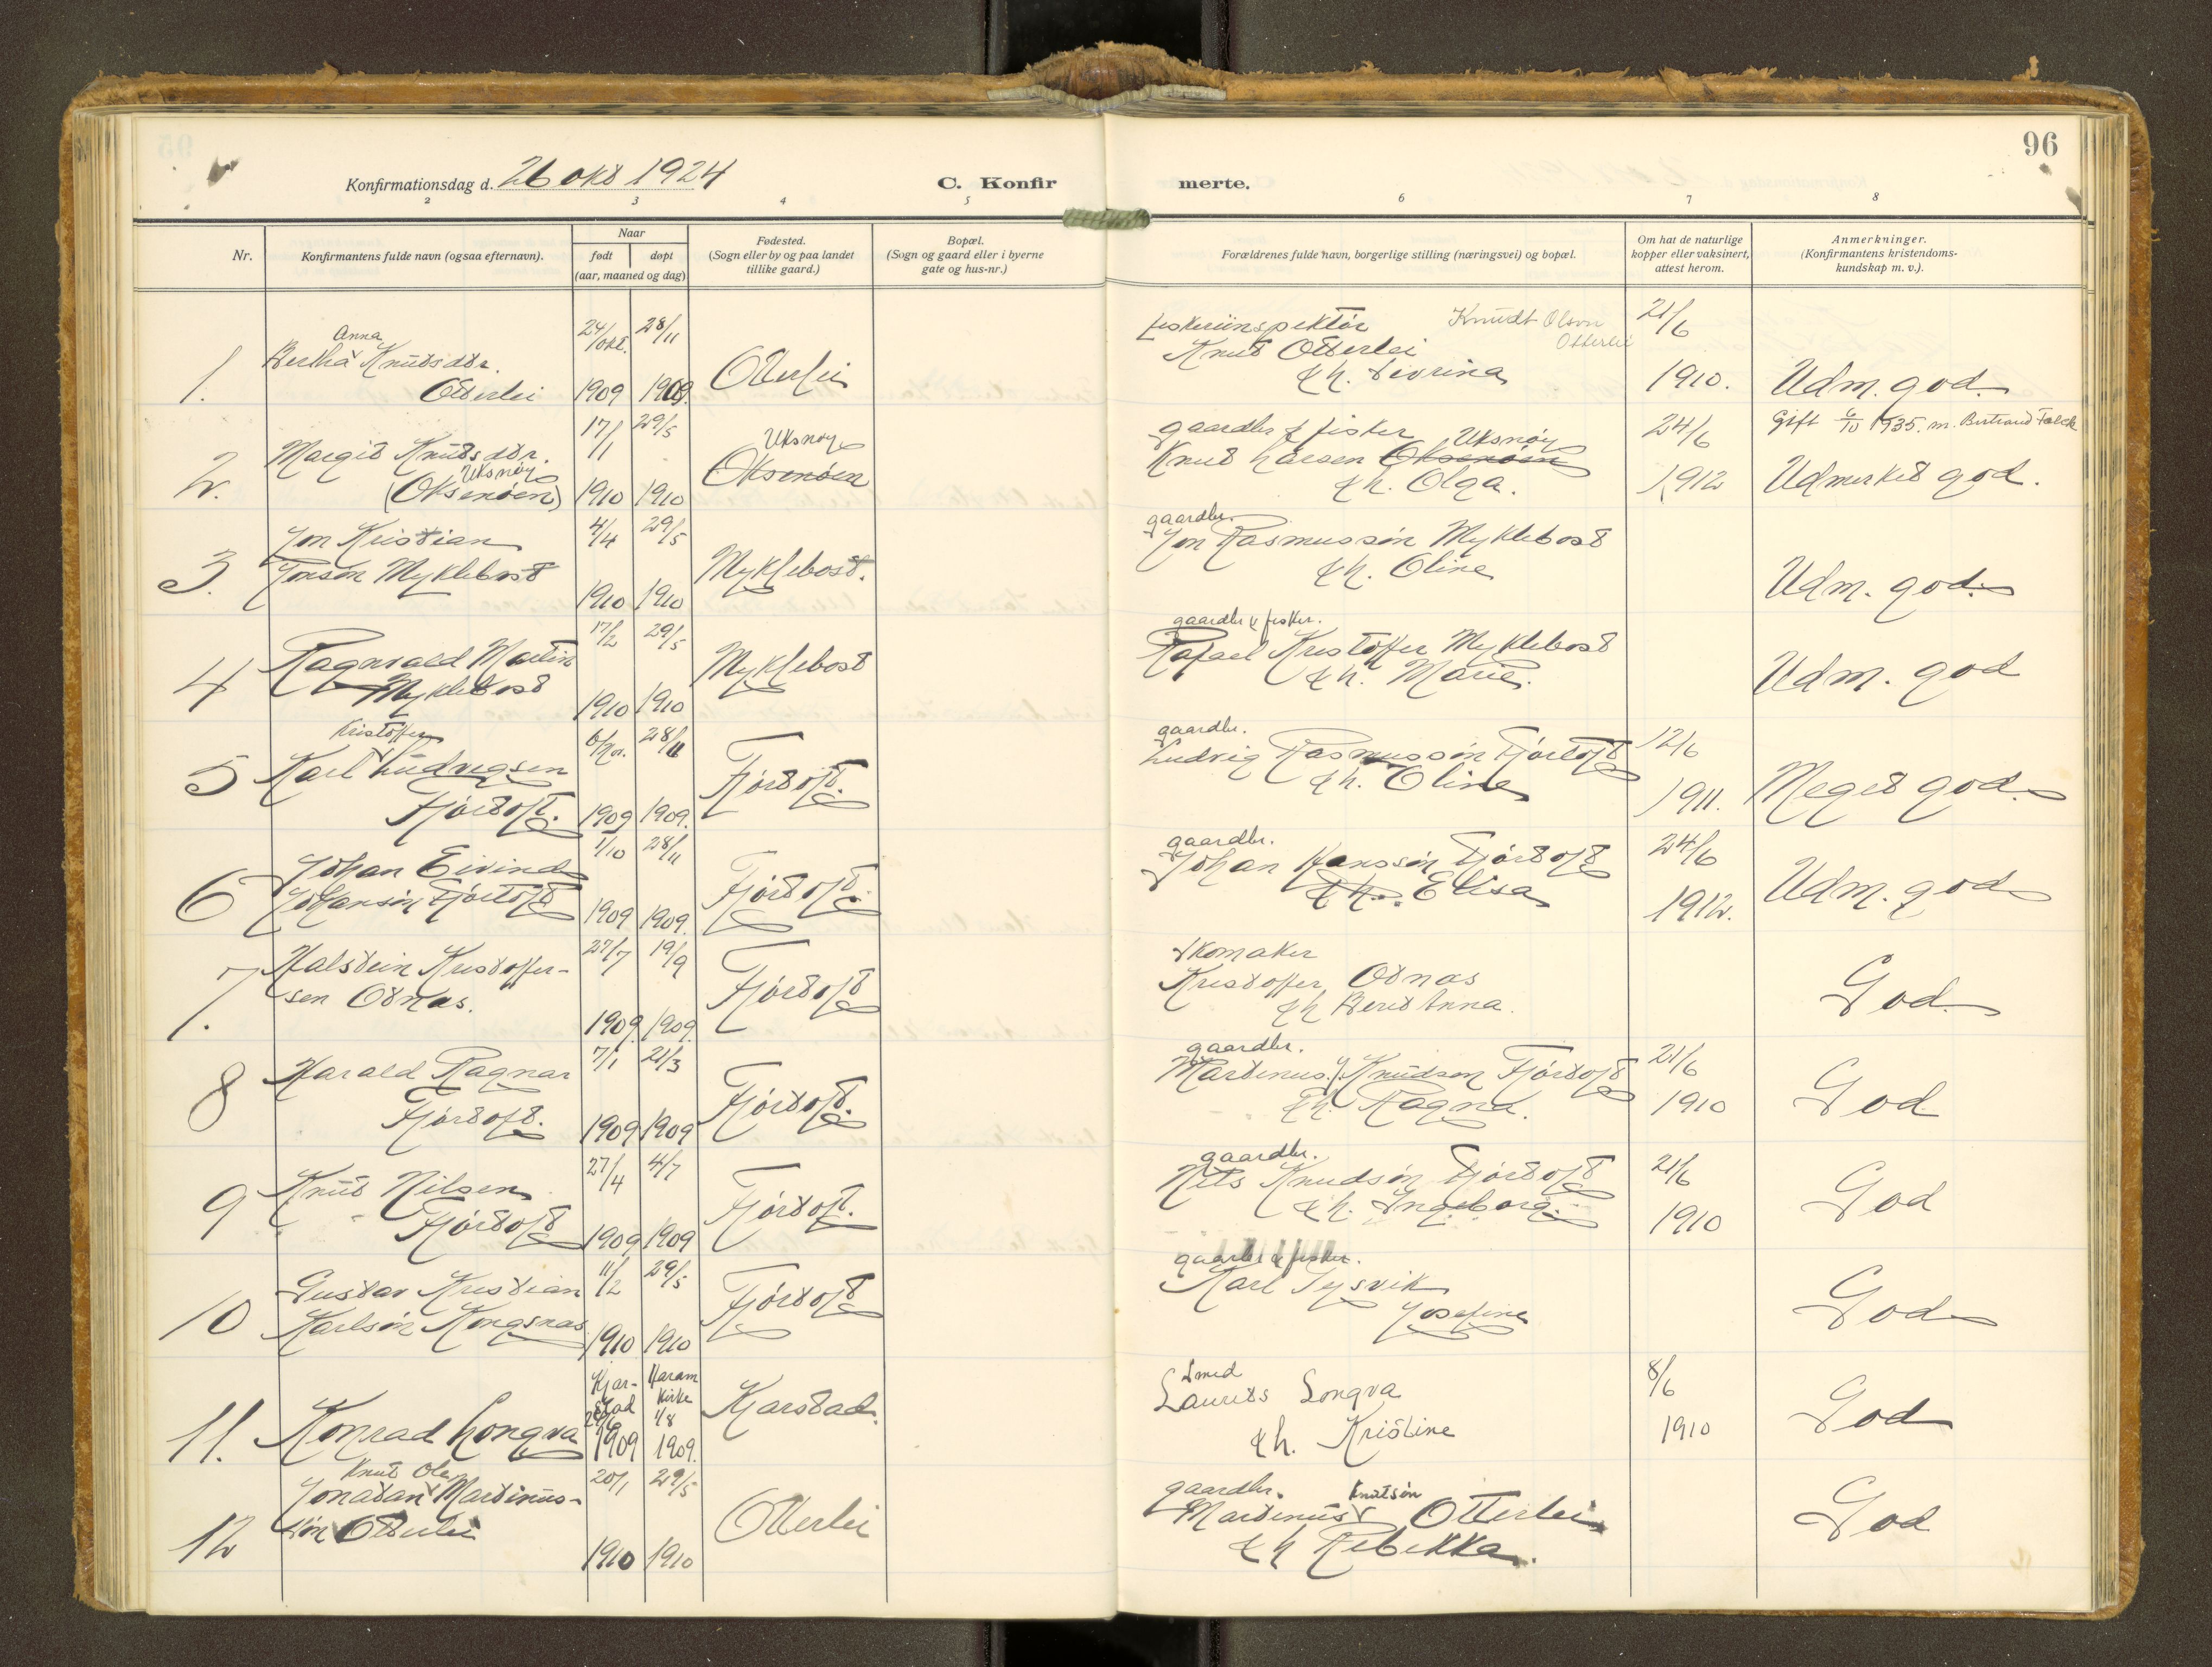 96
Konfirmationsdag d. 26 okt 1924
C. Konfirmerte.
2 3 4 5 6 7 8
Nr.
Konfirmantens fulde navn (ogsaa efternavn).
Naar
født døpt
(aar, maaned og dag)
Fødested.
(Sogn eller by og paa landet
tillike gaard.)
Bopæl.
(Sogn og gaard eller i byerne
gate og hus-nr.)
Forældrenes fulde navn, borgerlige stilling (næringsvei) og bopæl.
Om hat de naturlige
kopper eller vaksinert,
attest herom.
Anmerkninger.
(Konfirmantens kristendoms-
kundskap m. v.).
1.
Anna
Bertha Knutsdtr.
Otterlei
24/okt. 1909
28/11 1909.
Otterlei
fiskeriinspektør
Knut Otterlei
& h. Sivrina
Knudt Olson
Otterlei
21/6 1910.
Udm. god.
2.
Margit Knutsdtr.
Uksnøy
(Oksenøen)
17/1 1910
29/5 1910
Uksnøy
Oksenøen
gaardbr & fisker Uksnøy
Knut Larsen Oksenøen
& h. Olga.
24/6 1912
Gift 6/10 1935. m. Bertrand Falck
Udmerket god.
3.
Jon Kristian
Jonsøn Myklebost
4/4 1910
29/5 1910
Myklebost.
gaardbr.
Jon Rasmussøn Myklebost
& h. Oline
Udm. god.
4
Ragnvald Martin
Myklebost
17/2 1910
29/5 1910
Myklebost
gaardbr & fisker.
Rafael Kristoffer Myklebost
& h. Marie.
Udm. god
5
Kristoffer
Karl Ludvigsen
Fjørtoft.
6/Nov. 1909
28/11 1909.
Fjørtoft.
gaardbr.
Ludvig Rasmussøn Fjørtoft
& h. Oline
12/6 1911.
Meget god.
6
Johan Eivind
Johansøn Fjørtoft
1/10 1909
28/11 1909.
Fjørtoft.
gaardbr.
Johan Hanssøn Fjørtoft
& h. Elisa
24/6 1912.
Udm. god
7.
Halstein Kristoffer-
sen Otnas.
27/7 1909.
19/9 1909.
Fjørtoft
Skomaker
Kristoffer Otnas
& h Berit Anna.
God.
8
Harald Ragnar
Fjørtoft.
7/1 1909
21/3 1909
Fjørtoft.
gaardbr.
Martinus J. Knudsen Fjørtoft
& h. Ragna.
21/6 1910
God
9
Knut Nilsen
Fjørtoft
27/4 1909
4/7 1909
Fjørtoft.
gaardbr.
Nils Knudsøn Fjørtoft
& h. Ingeborg.
21/6 1910
God
10
Gustav Kristian
Karlsøn Kongsnas
11/2 1910
29/5 1910
Fjørtoft
gaardbr & fisker.
Karl Tysvik
Josefine
God
11.
Konrad Longva
Kjar-
stad
1909
Haram
Kirke
1/8
1909.
Kjarstad.
Smed
Laurits Longva
& h. Kristine
8/6 1910
God
12
Knut Ole
Jonatan Martinus-
søn Otterlei
20/1 1910
29/5 1910
Otterlei
gaardbr. Knutsøn
Martinus Otterlei
& h Rebekka.
God